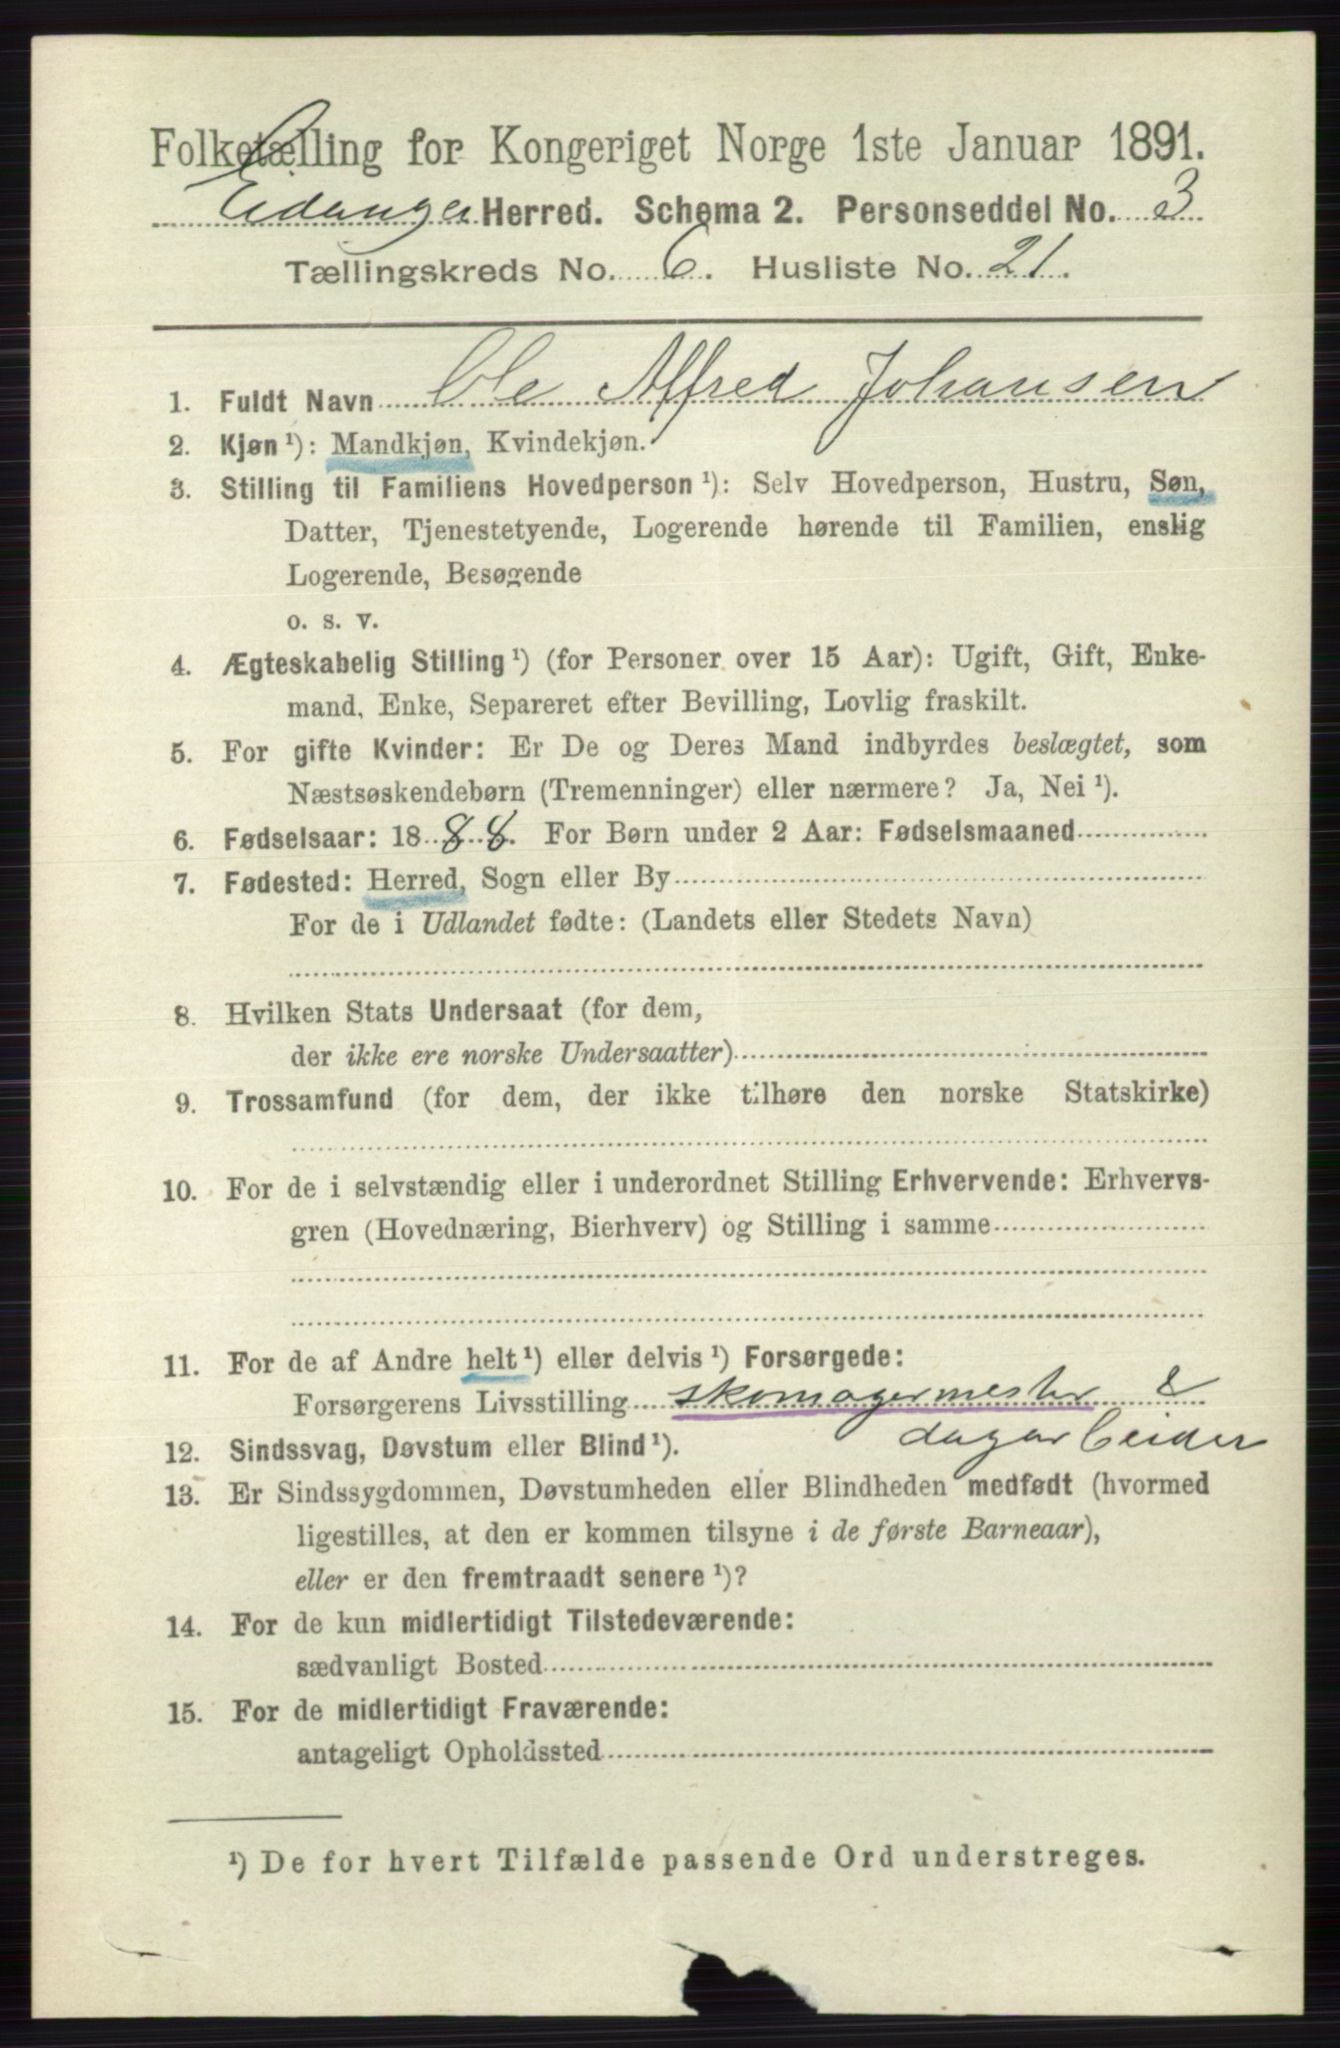 Folketælling for Kongeriget Norge 1ste Januar 1891.
Eidanger Herred. Schema 2. Personseddel No. 3
Tællingskreds No. 6. Husliste No. 21.
1. Fuldt Navn Ole Alfred Johansen
2. Kjøn ¹): Mandkjøn, Kvindekjøn.
3. Stilling til Familiens Hovedperson ¹): Selv Hovedperson, Hustru, Søn,
Datter, Tjenestetyende, Logerende hørende til Familien, enslig
Logerende, Besøgende
o. s. v.
4. Ægteskabelig Stilling ¹) (for Personer over 15 Aar): Ugift, Gift, Enke-
mand, Enke, Separeret efter Bevilling, Lovlig fraskilt.
5. For gifte Kvinder: Er De og Deres Mand indbyrdes beslægtet, som
Næstsøskendebørn (Tremenninger) eller nærmere? Ja, Nei ¹).
6. Fødselsaar: 1888. For Børn under 2 Aar: Fødselsmaaned
7. Fødested: Herred, Sogn eller By
For de i Udlandet fødte: (Landets eller Stedets Navn)
8. Hvilken Stats Undersaat (for dem,
der ikke ere norske Undersaatter)
9. Trossamfund (for dem, der ikke tilhøre den norske Statskirke)
10. For de i selvstændig eller i underordnet Stilling Erhvervende: Erhvervs-
gren (Hovednæring, Bierhverv) og Stilling i samme
11. For de af Andre helt ¹) eller delvis ¹) Forsørgede:
Forsørgerens Livsstilling skomagermester &
dagarbeider
12. Sindssvag, Døvstum eller Blind ¹).
13. Er Sindssygdommen, Døvstumheden eller Blindheden medfødt (hvormed
ligestilles, at den er kommen tilsyne i de første Barneaar),
eller er den fremtraadt senere ¹)?
14. For de kun midlertidigt Tilstedeværende:
sædvanligt Bosted
15. For de midlertidigt Fraværende:
antageligt Opholdssted
¹) De for hvert Tilfælde passende Ord understreges.